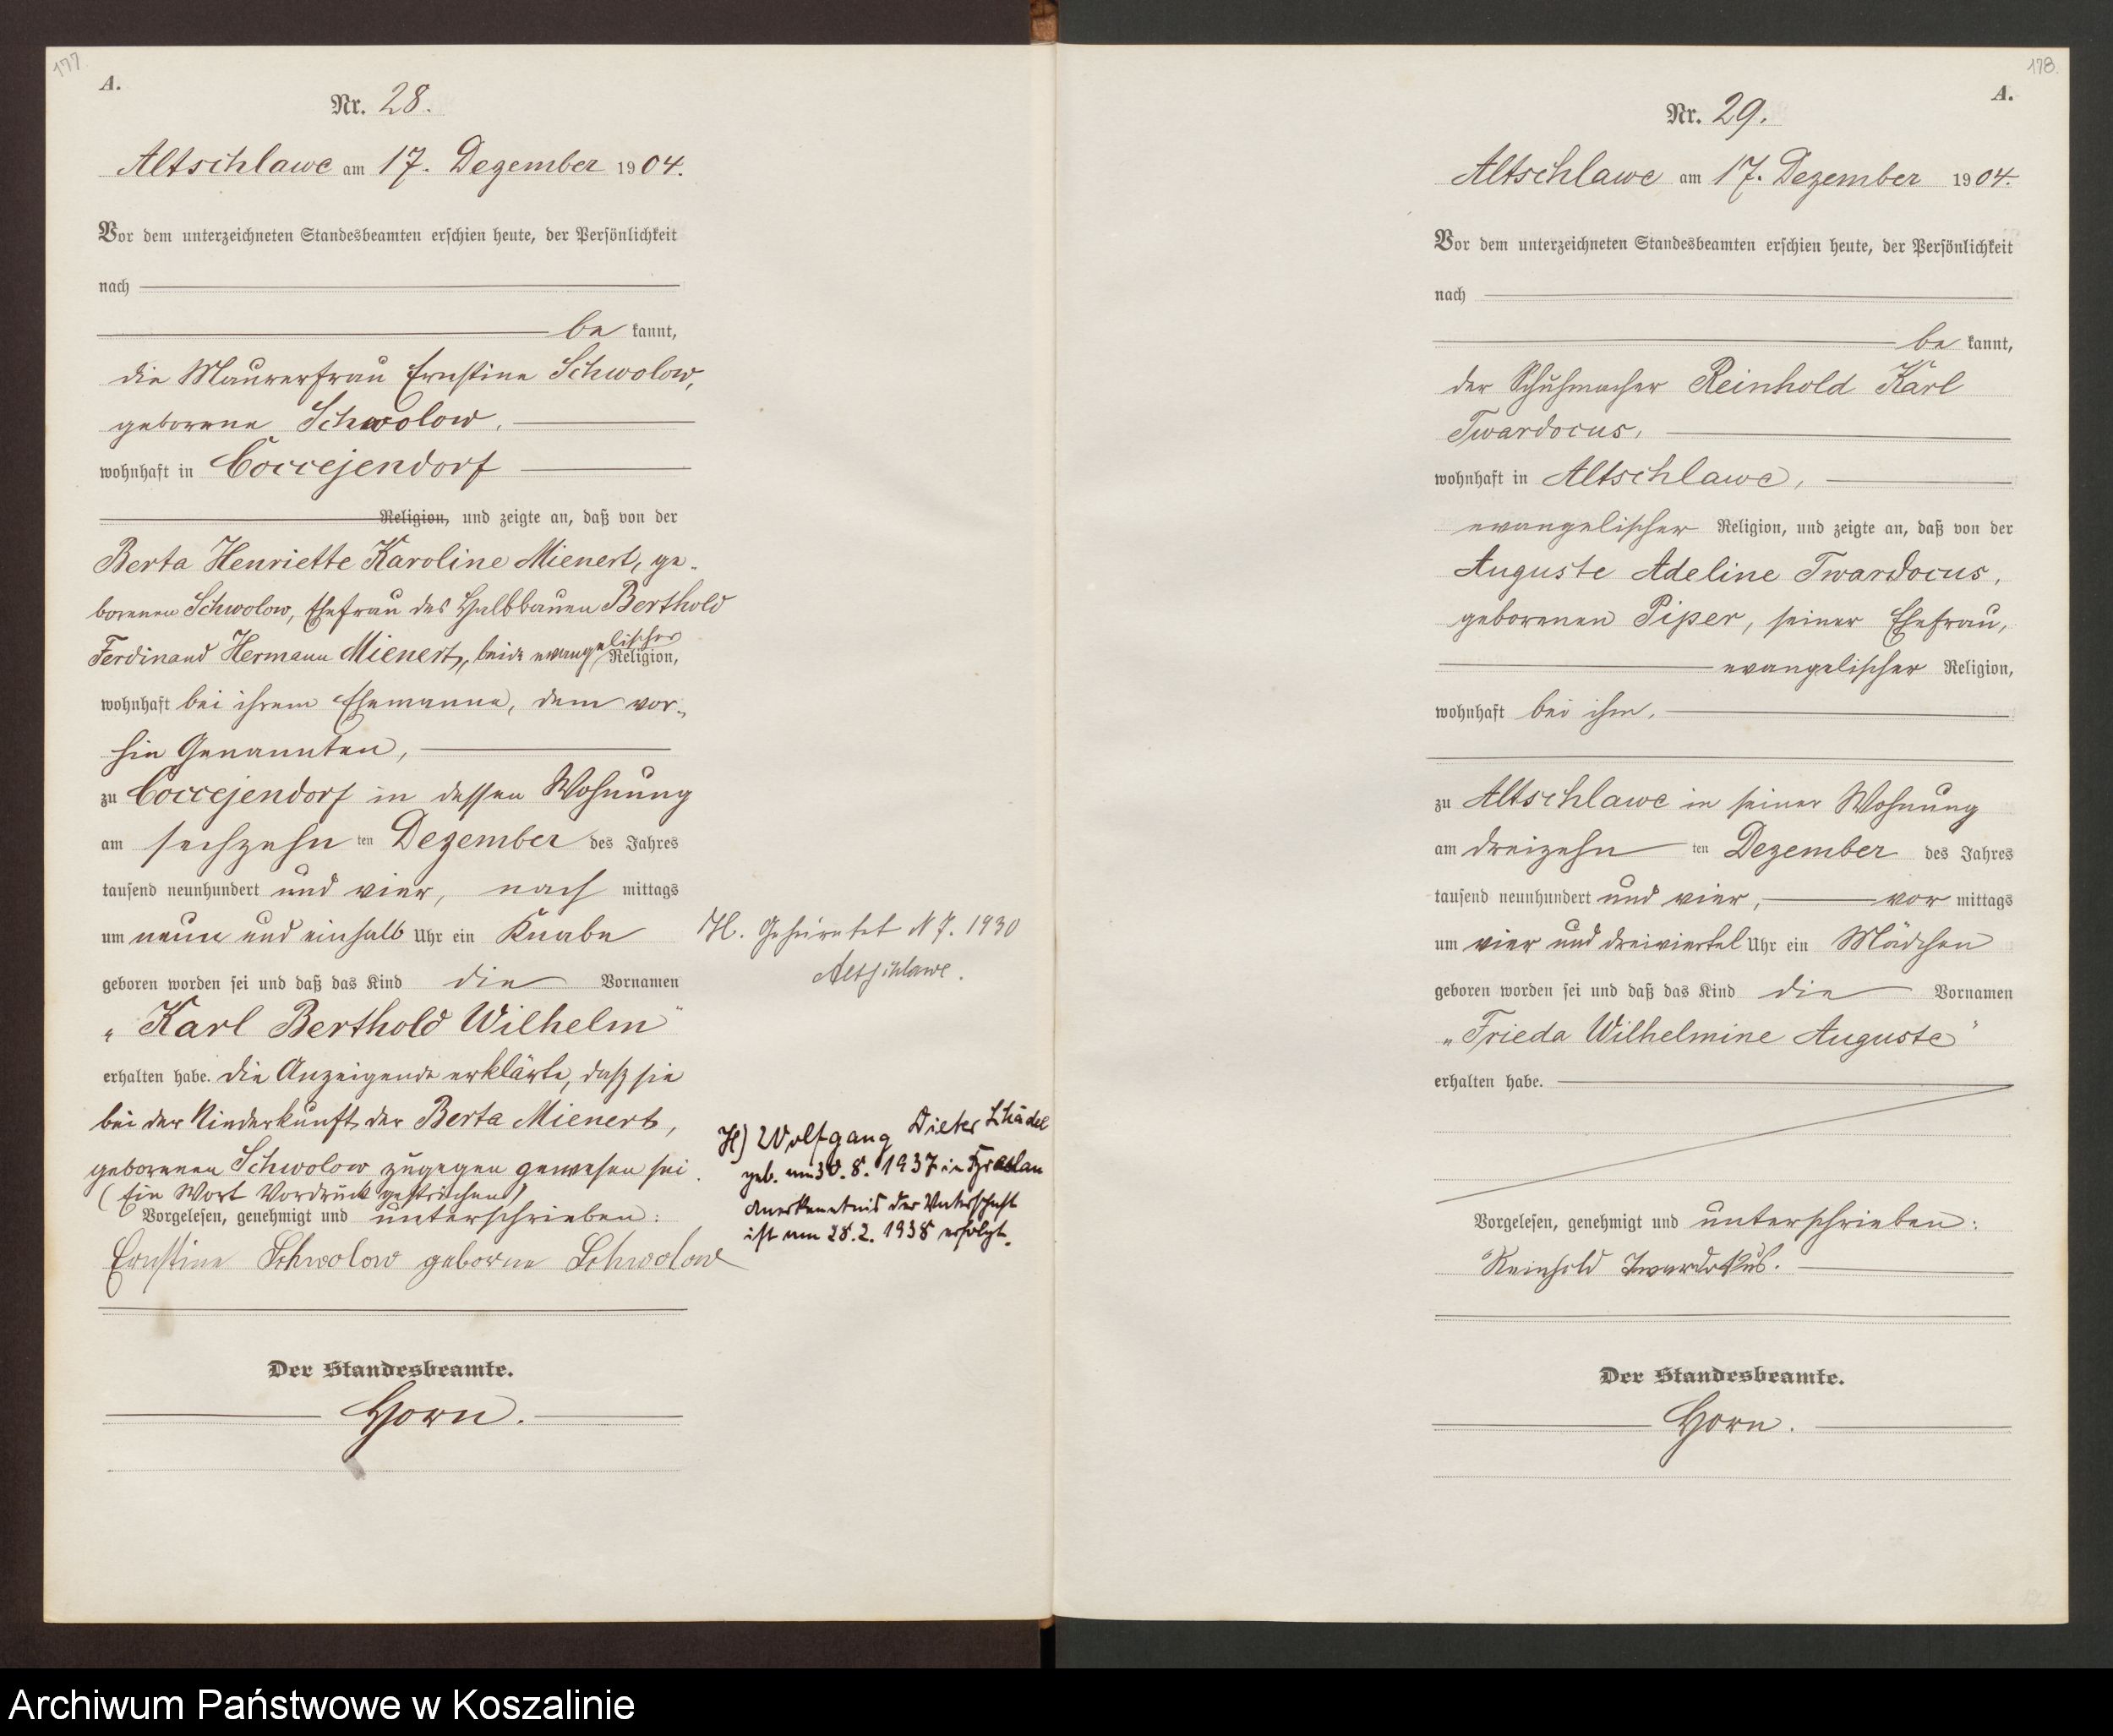 177.
A.
Nr. 28.
Altschlawe am 17. Dezember 1904.
Vor dem unterzeichneten Standesbeamten erschien heute, der Persönlichkeit
nach
be kannt,
die Maurerfrau Ernstine Schwolow,
geborene Schwolow,
wohnhaft in Coccejendorf
Religion, und zeigte an, daß von der
Berta Henriette Karoline Mienert, ge-
borenen Schwolow, Ehefrau des Halbbauen Berthold
Ferdinand Hermann Mienert, beide evangelischer Religion,
wohnhaft bei ihrem Ehemanne, dem vor-
hin Genannten,
zu Coccejendorf in dessen Wohnung
am sechzehn ten Dezember des Jahres
tausend neunhundert und vier, nach mittags
um neun und einhalb Uhr ein Knabe
geboren worden sei und daß das Kind die Vornamen
„Karl Berthold Wilhelm"
erhalten habe. Die Anzeigende erklärte, daß sie
bei der Niederkunft der Berta Mienert,
geborenen Schwolow zugegen gewesen sei.
(Ein Wort Vordruck gestrichen)
Vorgelesen, genehmigt und unterschrieben:
Ernstine Schwolow geborne Schwolow
Der Standesbeamte.
Horn.
H. Geheiratet 7. 1930
Altschlawe.
H) Wolfgang Dieter
geb. am 30. 8. 1937 in
Anerkenntnis der Vaterschaft
ist am 28. 2. 1938 erfolgt.
178.
A.
Nr. 29.
Altschlawe am 17. Dezember 1904.
Vor dem unterzeichneten Standesbeamten erschien heute, der Persönlichkeit
nach
be kannt,
der Schuhmacher Reinhold Karl
Twardocus,
wohnhaft in Altschlawe,
evangelischer Religion, und zeigte an, daß von der
Auguste Adeline Twardocus,
geborenen Piper, seiner Ehefrau,
evangelischer Religion,
wohnhaft bei ihm,
zu Altschlawe in seiner Wohnung
am dreizehn ten Dezember des Jahres
tausend neunhundert und vier, vor mittags
um vier und dreiviertel Uhr ein Mädchen
geboren worden sei und daß das Kind die Vornamen
„Frieda Wilhelmine Auguste"
erhalten habe.
Vorgelesen, genehmigt und unterschrieben:
Reinhold Twardokus.
Der Standesbeamte.
Horn.
Archiwum Państwowe w Koszalinie